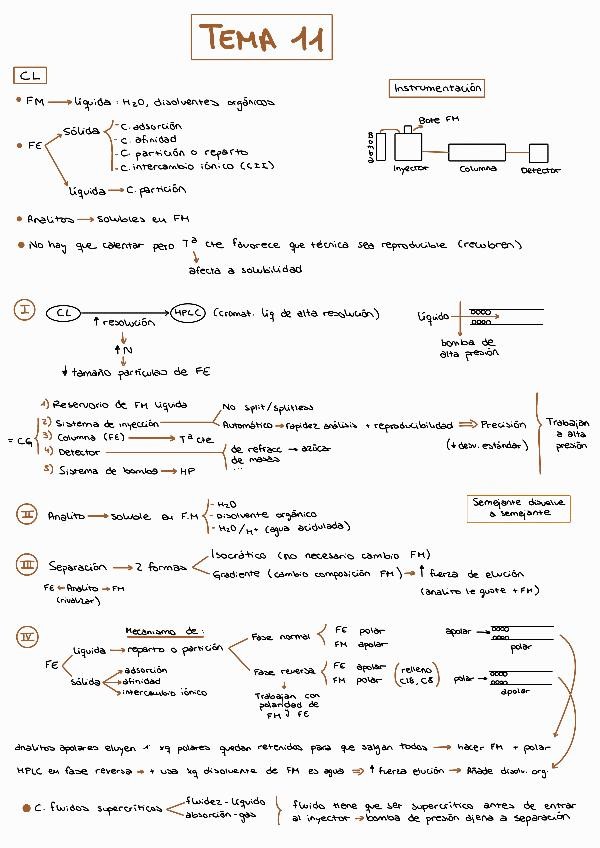 TEMA 11
CL
Instrumentación
• FM → líquida : H2O, disolventes orgánicos
• FE
Sólida
- C. adsorción
- C. afinidad
- C. partición o reparto
- C. intercambio iónico (CII)
líquida → C. partición
Bote FM
Bomba
Inyector
Columna
Detector
• Analitos → solubles en FM
• No hay que calentar pero Tª cte favorece que técnica sea reproducible (recubren)
afecta a solubilidad
I
CL → HPLC (cromat. líq de alta resolución)
↑ resolución
↑ N
↓ tamaño partículas de FE
líquido
bomba de
alta presión
1) Reservorio de FM líquida
2) Sistema de inyección
No split/splitless
Automático → rapidez análisis + reproducibilidad ⇒ Precisión
(↓ desv. estándar)
= CG
3) Columna (FE) → Tª cte
4) Detector
de refracc → azúcar
de masas
...
5) Sistema de bomba → HP
Trabajan
a alta
presión
II
Analito → soluble en F.M
- H2O
- Disolvente orgánico
- H2O/H+ (agua acidulada)
Semejante disuelve
a semejante
III
Separación → 2 formas
Isocrático (no necesario cambio FM)
Gradiente (cambio composición FM) → ↑ fuerza de elución
(analito le guste + FM)
FE ← Analito → FM
(rivalizar)
IV
Mecanismo de:
FE
líquida → reparto o partición
Fase normal
FE polar
FM apolar
Fase reversa
FE apolar
FM polar
(relleno
C18, C8)
Trabajan con
polaridad de
FM y FE
sólida
adsorción
afinidad
intercambio iónico
apolar →
polar
polar →
apolar
analitos apolares eluyen 1º xq polares quedan retenidos para que salgan todos → hacer FM + polar
HPLC en fase reversa → + usa xq disolvente de FM es agua ⇒ ↑ fuerza elución → Añade disolv. org.
• C. fluidos supercríticos
fluidez - líquido
absorción - gas
fluido tiene que ser supercrítico antes de entrar
al inyector → bomba de presión ajena a separación